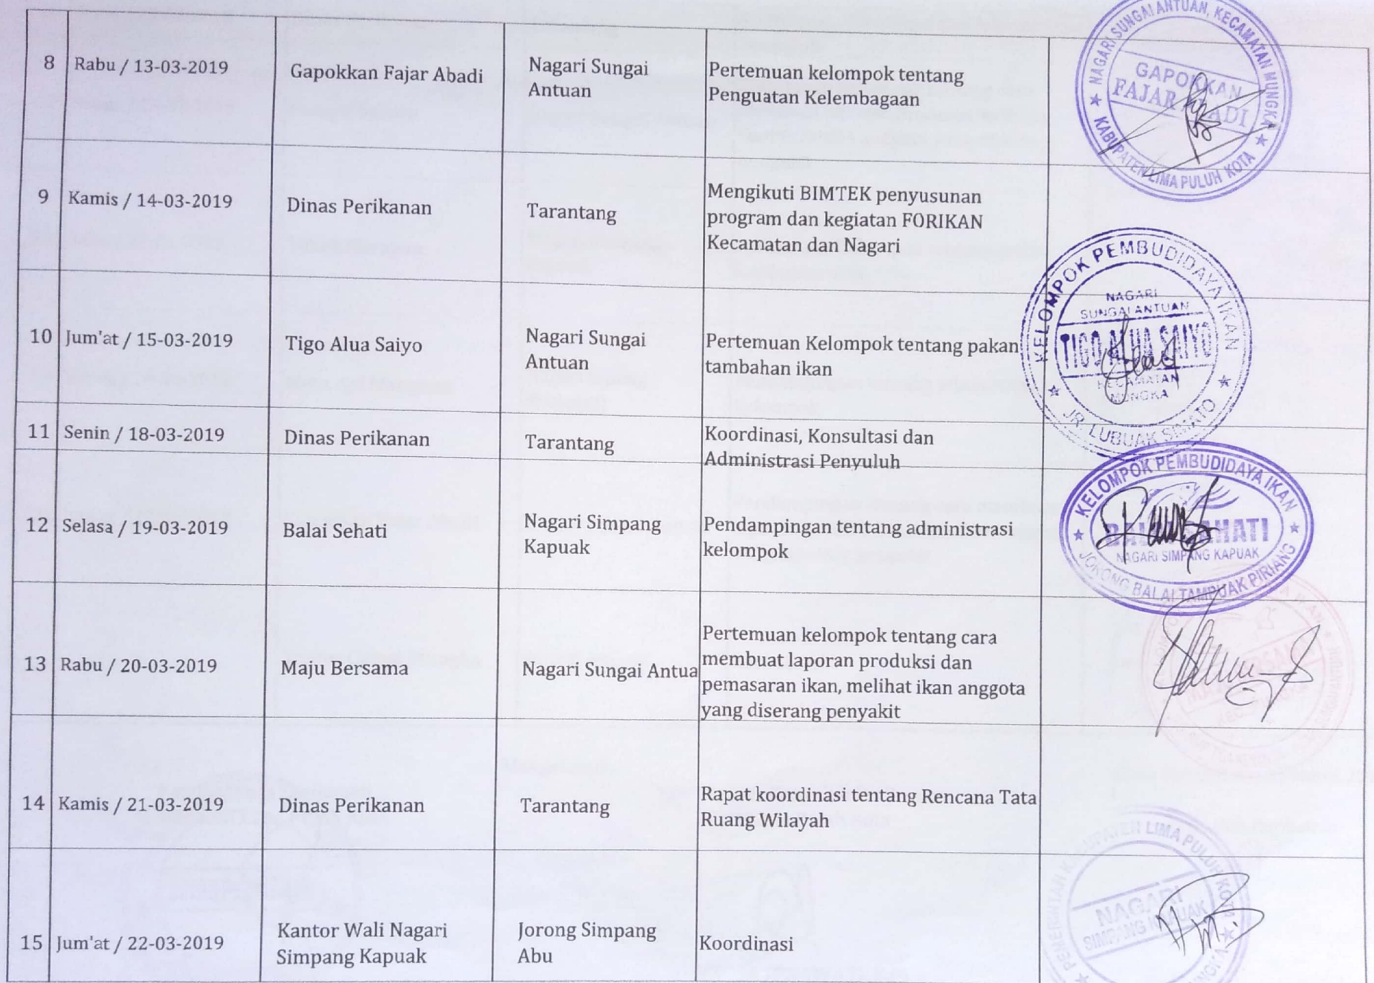 8 Rabu / 13-03-2019 Gapokkan Fajar Abadi Nagari Sungai Antuan Pertemuan kelompok tentang Penguatan Kelembagaan
NAGARI SUNGAI ANTUAN, KECAMATAN MUNGKA
GAPOKKAN
FAJAR ABADI
KABUPATEN LIMA PULUH KOTA
9 Kamis / 14-03-2019 Dinas Perikanan Tarantang Mengikuti BIMTEK penyusunan program dan kegiatan FORIKAN Kecamatan dan Nagari
10 Jum'at / 15-03-2019 Tigo Alua Saiyo Nagari Sungai Antuan Pertemuan Kelompok tentang pakan tambahan ikan
KELOMPOK PEMBUDIDAYA IKAN
NAGARI
SUNGAI ANTUAN
TIGO ALUA SAIYO
KECAMATAN
MUNGKA
JR. LUBUAK
11 Senin / 18-03-2019 Dinas Perikanan Tarantang Koordinasi, Konsultasi dan Administrasi Penyuluh
12 Selasa / 19-03-2019 Balai Sehati Nagari Simpang Kapuak Pendampingan tentang administrasi kelompok
KELOMPOK PEMBUDIDAYA IKAN
BALAI SAHATI
NAGARI SIMPANG KAPUAK
JORONG BALAI TAMPUAK PIRIANG
13 Rabu / 20-03-2019 Maju Bersama Nagari Sungai Antua Pertemuan kelompok tentang cara membuat laporan produksi dan pemasaran ikan, melihat ikan anggota yang diserang penyakit
14 Kamis / 21-03-2019 Dinas Perikanan Tarantang Rapat koordinasi tentang Rencana Tata Ruang Wilayah
15 Jum'at / 22-03-2019 Kantor Wali Nagari Simpang Kapuak Jorong Simpang Abu Koordinasi
LIMA PULUH KOTA
NAGARI
SIMPANG KAPUAK